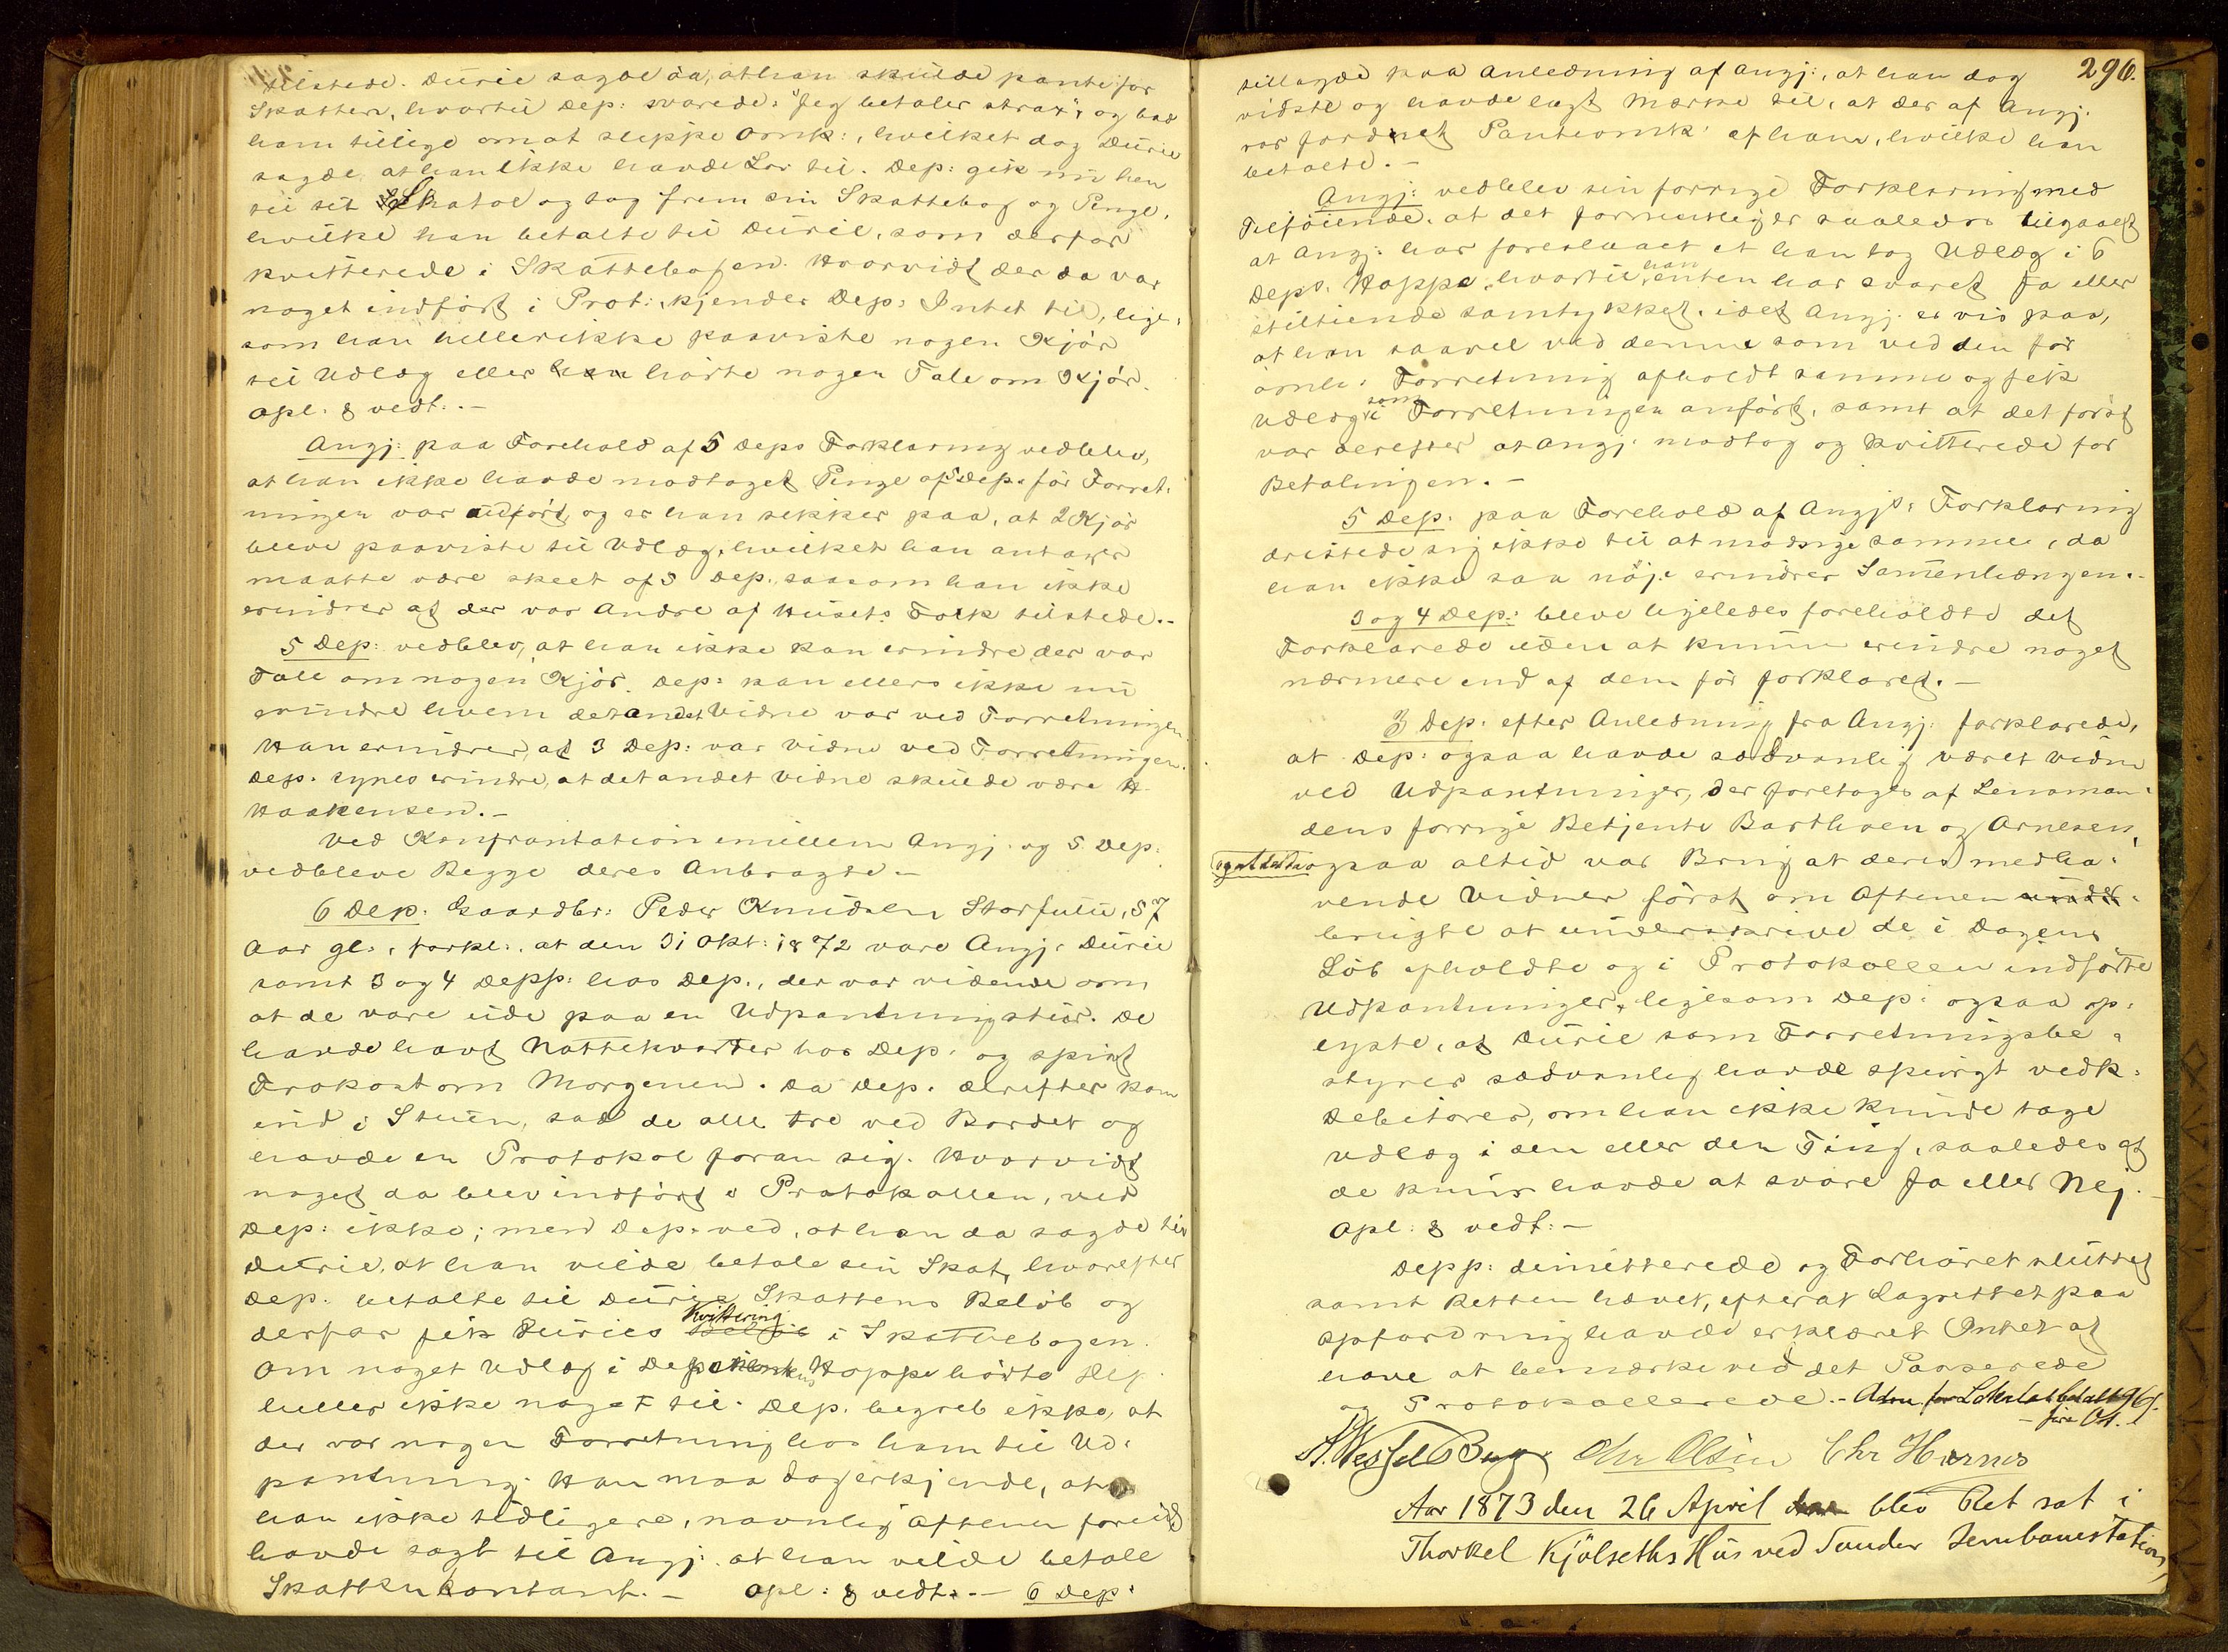 tilstede. Durie sagde da, at han skulde pante for
Skatten, hvortil Dep: svarede: "Jeg betaler strax", og bad
ham tillige om at slippe Omk:, hvilket dog Durie
sagde at han ikke havde Lov til. Dep: gik nu hen
til sit Skatol og tog frem sin Skattebog og Penge,
hvilke han betalte til Durie, som derfor
kvitterede i Skattebogen. Hvorvidt der da var
noget indført i Prot:, kjender Dep: Intet til, lige,
som han hellerikke paaviste nogen Kjør
til Udlæg eller hørte nogen Tale om Kjør.
Opl. & vedt:.-
Angj: paa Forehold af 5 Deps Forklaring vedblev,
at han ikke havde modtaget Penge af 5 Dep: før Forret-
ningen var udført, og er han sikker paa, at 2 Kjør
bleve paaviste til Udlæg, hvilket han antager
maatte være skeet af 5 Dep., saasom han ikke
erindrer at der var Andre af Husets Folk tilstede.-
5 Dep: vedblev, at han ikke kan erindre, der var
Tale om nogen Kjør. Dep: kan ellers ikke nu
erindre hvem det andet Vidne var ved Forretningen.
Han erindrer, at 3 Dep: var Vidne ved Forretningen.
Dep. synes erindre, at det andet Vidne skulde være H.
Haakensen.-
Ved Konfrontation imellem Angj. og 5 Dep:
vedbleve Begge deres Anbragte.-
6 Dep. Gaardbr: Peder Knudsen Storfuru, 57
Aar gl:, forkl:, at den 31 Okt: 1872 vare Angj: Durie
samt 3 og 4 Depp: hos Dep., der var vidende om
at de vare ude paa en Udpantningstur. De
havde havt Nattekvarter hos Dep. og spist
Frokost om Morgenen. Da Dep. derefter kom
ind i Stuen, sad de alle tre ved Bordet og
havde en Protokol foran sig. Hvorvidt
noget da blev indført i Protokollen, ved
Dep: ikke; men Dep. ved, at han da sagde til
Durie, at han vilde betale sin Skat, hvorefter
Dep. betalte til Durie Skattens Beløb og
derfor fik Duries Kvittering i Skattebogen.
Om noget Udlæg i Deps Hoppe hørte Dep.
heller ikke noget til. Dep. begreb ikke, at
der var nogen Forretning hos ham til Ud-
pantning. Han maa dog erkjende, at
han ikke tidligere, navnlig Aftenen forud
havde sagt til Angj: at han vilde betale
Skatten kontant.- Opl: & vedt:.- 6 Dep:
296.
tillagde paa Anledning af Angj:, at han dog
vidste og havde lagt Mærke til, at der af Angj.
var fordret Panteomk: af ham, hvilke han
betalte.-
Angj: vedblev sin forrige Forklaring med
Tilføiende, at det formentlig er saaledes tilgaaet
at Angj: har foreslaaet at han tog Udlæg i 6
Deps. Hoppe, hvortil han enten har svaret Ja eller
stiltiende samtykket, idet Angj. er vis paa,
at han saavel ved denne som ved den før
omh: Forretning afholdt samme og fik
Udlæg som i Forretningen anført, samt at det først
var derefter at Angj. modtog og kvitterede for
Betalingen.-
5 Dep: paa Forehold af Angjs: Forklaring
dristede sig ikke til at modsige samme, da
han ikke saa nøje erindrer Sammenhængen.-
3 og 4 Dep: bleve ligeledes foreholdte det
Forklarede uden at kunne erindre noget
nærmere end af dem før forklaret.-
3 Dep. efter Anledning fra Angj: forklarede,
at Dep: ogsaa havde sædvanlig været Vidne
ved Udpantninger, der foretoges af Lensman-
dens forrige Betjente Barthsen og Arnesen,
ogsaa altid var Brug at deres medha-
vende Vidner først om Aftenen
brugte at underskrive de i Dagens
Løb afholdte og i Protokollen indførte
Udpantninger, ligesom Dep: ogsaa op-
lyste, at Durie som Forretningsbe-
styrer sædvanlig havde spurgt vedk:
Debitorer, om han ikke kunde tage
Udlæg i den eller den Ting, saaledes at
de kuns havde at svare Ja eller Nej.
Opl: & vedt:-
Depp: dimitterede og Forhøret sluttet
samt Retten hævet, efterat Lagrettet paa
Opfordring havde erklæret Intet at
have at bemærke ved det Passerede
og Protokollerede.-
Chr Olsen Chr Hernes
Aar 1873 den 26 April blev Ret sat i
Thorkel Kjölseths Hus ved Tunder Jernbanestation,